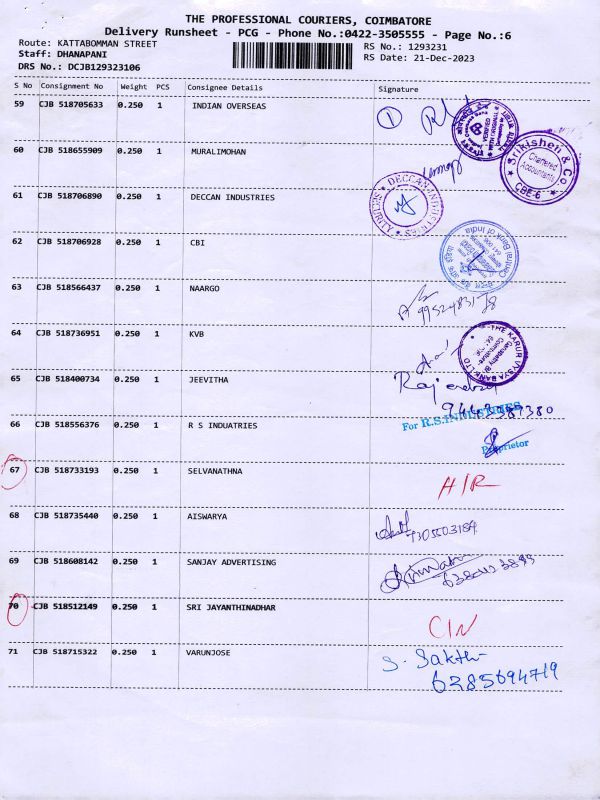 THE PROFESSIONAL COURIERS, COIMBATORE
Delivery Runsheet - PCG - Phone No.:0422-3505555 - Page No.:6
Route: KATTABOMMAN STREET
RS No.: 1293231
Staff: DHANAPANI
RS Date: 21-Dec-2023
DRS No.: DCJB129323106
S No Consignment No Weight PCS Consignee Details Signature
59 CJB 518705633 0.250 1 INDIAN OVERSEAS
1
Srikishen & Co
Chartered Accountants
CBE-6
60 CJB 518655909 0.250 1 MURALIMOHAN
61 CJB 518706890 0.250 1 DECCAN INDUSTRIES
DECCAN INDUSTRIES
62 CJB 518706928 0.250 1 CBI
Central Bank of India
63 CJB 518566437 0.250 1 NAARGO
64 CJB 518736951 0.250 1 KVB
THE KARUR VYSYA BANK LTD
65 CJB 518400734 0.250 1 JEEVITHA
66 CJB 518556376 0.250 1 R S INDUATRIES
For R.S.INDUSTRIES
Proprietor
67 CJB 518733193 0.250 1 SELVANATHNA
H/R
68 CJB 518735440 0.250 1 AISWARYA
69 CJB 518608142 0.250 1 SANJAY ADVERTISING
70 CJB 518512149 0.250 1 SRI JAYANTHINADHAR
C/N
71 CJB 518715322 0.250 1 VARUNJOSE
S. Sakthi
6385694719